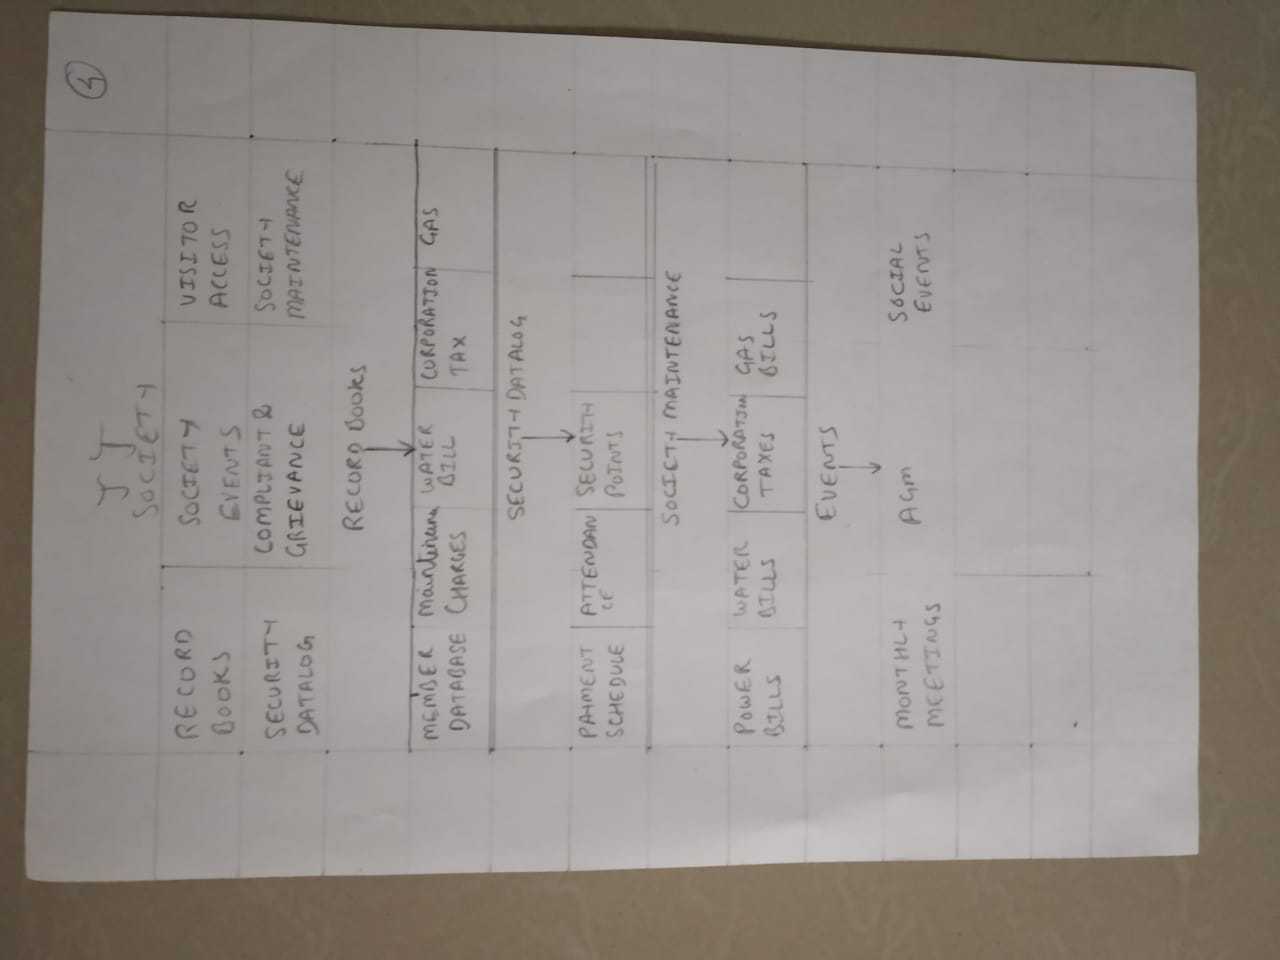 4
J J
SOCIETY
RECORD BOOKS
SOCIETY EVENTS
VISITOR ACCESS
SECURITY DATALOG
COMPLIANT & GRIEVANCE
SOCIETY MAINTENANCE
RECORD BOOKS
MEMBER DATABASE
Maintenance CHARGES
WATER BILL
CORPORATION TAX
GAS
SECURITY DATALOG
PAYMENT SCHEDULE
ATTENDAN CE
SECURITY POINTS
SOCIETY MAINTENANCE
POWER BILLS
WATER BILLS
CORPORATION TAXES
GAS BILLS
EVENTS
MONTHLY MEETINGS
AGM
SOCIAL EVENTS